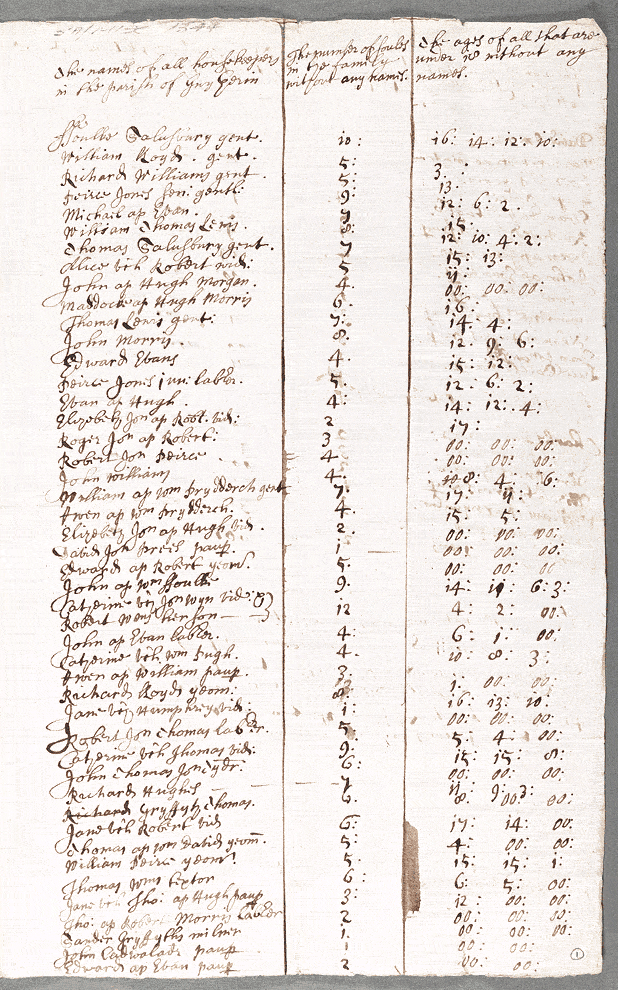 The names of all housekeepers The number of soules The ages of all that are
in the parish of Gwytherin in the family under 18 without any
without any names. names.
ffoulke Salusbury gent. 10: 16: 14: 12: 10:
William lloyd. gent. 5: 3:
Richard Williams gent. 5: 13:
Peirce Jones sen: gent: 9: 12: 6: 2.
Michael ap Evan. 7
William Thomas Lewis. 8: 15:
Thomas Salusbury gent. 7 12: 10: 4: 2:
Alice vch Robert vid: 5 15: 13:
John ap Hugh Morgan. 4: 11:
Maddock ap Hugh Morris 6: 00: 00: 00:
Thomas Lewis gent: 7: 16:
John Morris 8: 14: 4:
Edward Evans 4. 12: 9: 6:
Peirce Jones iun: labler. 5: 15: 12:
Evan ap Hugh. 4: 12: 6: 2:
Elizabeth Jon ap Robt. vid: 2 14: 12: 4:
Roger Jon ap Robert: 3 17:
Robert Jon Peirce 4 00: 00: 00:
John William 4. 00: 00: 00:
William ap wm prydderch gent 7. 8: 4: 6:
Owen ap wm prydderch. 4. 17: 11:
Elizabeth Jon ap Hugh vid. 2. 15: 5:
David Jon Prees paup. 1 00: 00: 00:
Edward ap Robert yeom. 5. 00: 00: 00:
John ap wm ffoulke 9. 00: 00: 00
Catherine vch Jon wyn vid: & 14: 11: 6: 3:
Robert Wens her son 12 4: 2: 00:
John ap Evan labler. 4: 6: 1: 00:
Catherine vch wm Pugh. 4. 10: 8: 3:
Owen ap William paup. 3: 1: 00: 00:
Richard lloyd yeom: 8: 16: 13: 10:
Jane vch Humphrey vid: 1: 00: 00: 00:
Robert Jon Thomas labler. 5 5: 4: 00:
Catherine vch Thomas vid: 9: 15: 15: 8:
John Thomas Jon 6: 00: 00: 00:
Richard Hughes 7 11: 9: 3:
Richard Gryffyth Thomas. 6. 8: 00: 00:
Jane vch Robert vid 6: 17: 14: 00:
Thomas ap wm David yeom. 5: 4: 00: 00:
William Peirce yeom 5: 15: 15: 1:
Thomas wms textor 6: 6: 5: 00:
Jane vch Tho: ap Hugh paup 3: 12: 00: 00:
Tho: ap Robert Morris labler 2 00: 00: 00:
Gryffyths milner 1 00: 00: 00:
John Cadwalader paup 1 00: 00:
Edward ap Evan paup 2 00: 00:
1